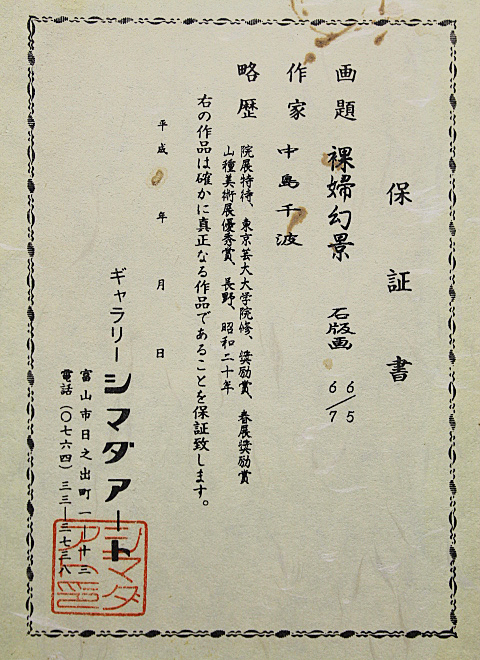 保証書
画題 裸婦幻景 石版画 66/75
作家 中島千波
略歴 院展特待、東京芸大大学院修、奨励賞、春展奨励賞
山種美術展優秀賞、長野、昭和二十年
右の作品は確かに真正なる作品であることを保証致します。
平成 年 月 日
ギャラリー シマダアート
富山市日之出町一ー十三
電話(〇七六四)三三ー二七三八
シマダ